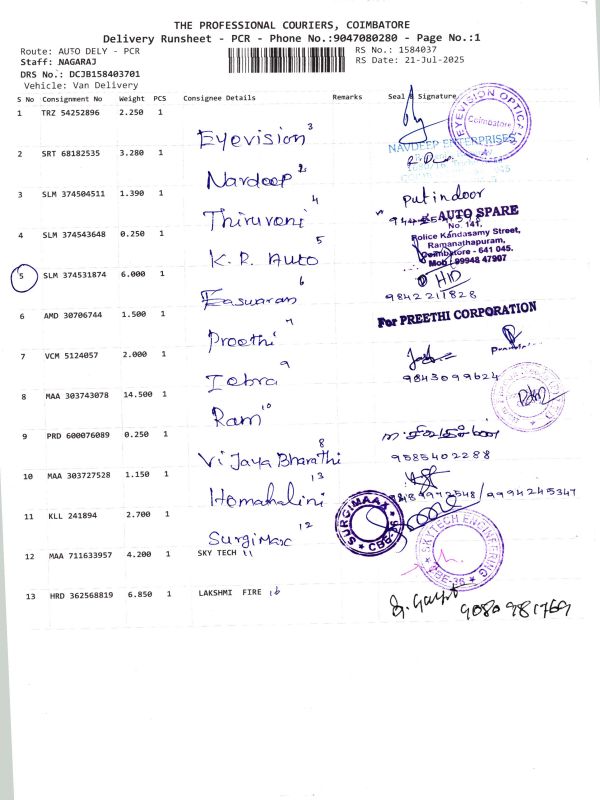 THE PROFESSIONAL COURIERS, COIMBATORE
Delivery Runsheet - PCR - Phone No.:9047080280 - Page No.:1
Route: AUTO DELY - PCR
RS No.: 1584037
Staff: NAGARAJ
RS Date: 21-Jul-2025
DRS No.: DCJB158403701
Vehicle: Van Delivery
S No Consignment No Weight PCS Consignee Details Remarks Seal & Signature
1 TRZ 54252896 2.250 1
Eyevision 3
EYEVISION OPTICAL
Coimbatore
NAVDEEP ENTERPRISES
2 SRT 68182535 3.280 1
Navdeep 2
3 SLM 374504511 1.390 1
Putindoor
Thiruvoni 4
AUTO SPARE
No. 141,
4 SLM 374543648 0.250 1
Police Kandasamy Street,
Ramanathapuram,
K. R. Auto 5
Coimbatore - 641 045.
Mob : 99948 47907
5 SLM 374531874 6.000 1
Easwaran 6
9842211828
6 AMD 30706744 1.500 1
For PREETHI CORPORATION
Preethi 7
7 VCM 5124057 2.000 1
Iebra 9
9843099624
8 MAA 303743078 14.500 1
Ram 10
9 PRD 600076089 0.250 1
Vijaya Bharathi 8
9585402288
10 MAA 303727528 1.150 1
Homahalini 13
/ 9994245347
11 KLL 241894 2.700 1
SURGIMAAX
CBE-36
Surgimax 12
12 MAA 711633957 4.200 1 SKY TECH 11
SKYTECH ENGINEERING
CBE-36
13 HRD 362568819 6.850 1 LAKSHMI FIRE 16